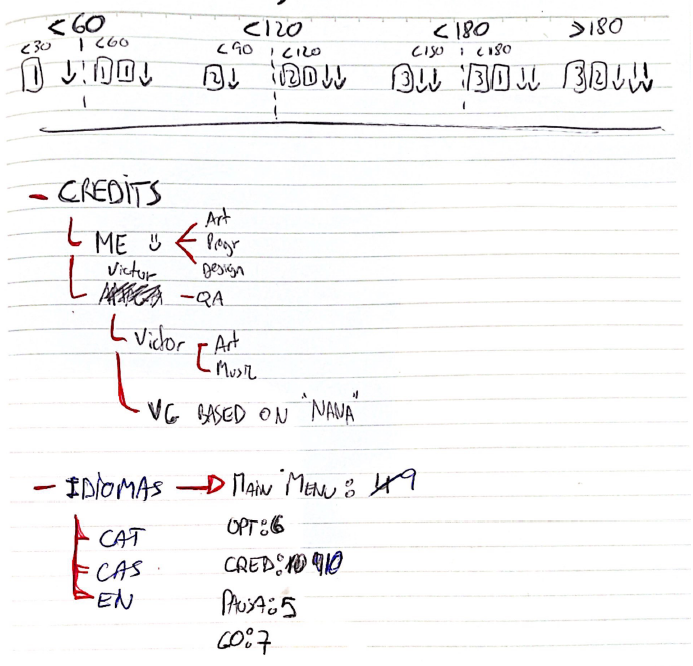 <60 <120 <180 >180
<30 <60 <90 <120 <150 <180
1 ↓ 1 1 ↓ 2 ↓ 2 1 ↓↓ 3 ↓↓ 3 1 ↓↓ 3 2 ↓↓↓
- CREDITS
ME Art
Progr
Design
Victor
- QA
Victor Art
Music
VG BASED ON "NANA"
- IDIOMAS → MAIN MENU: 9
CAT OPT: 6
CAS CRED: 10
EN PAUSA: 5
GO: 7